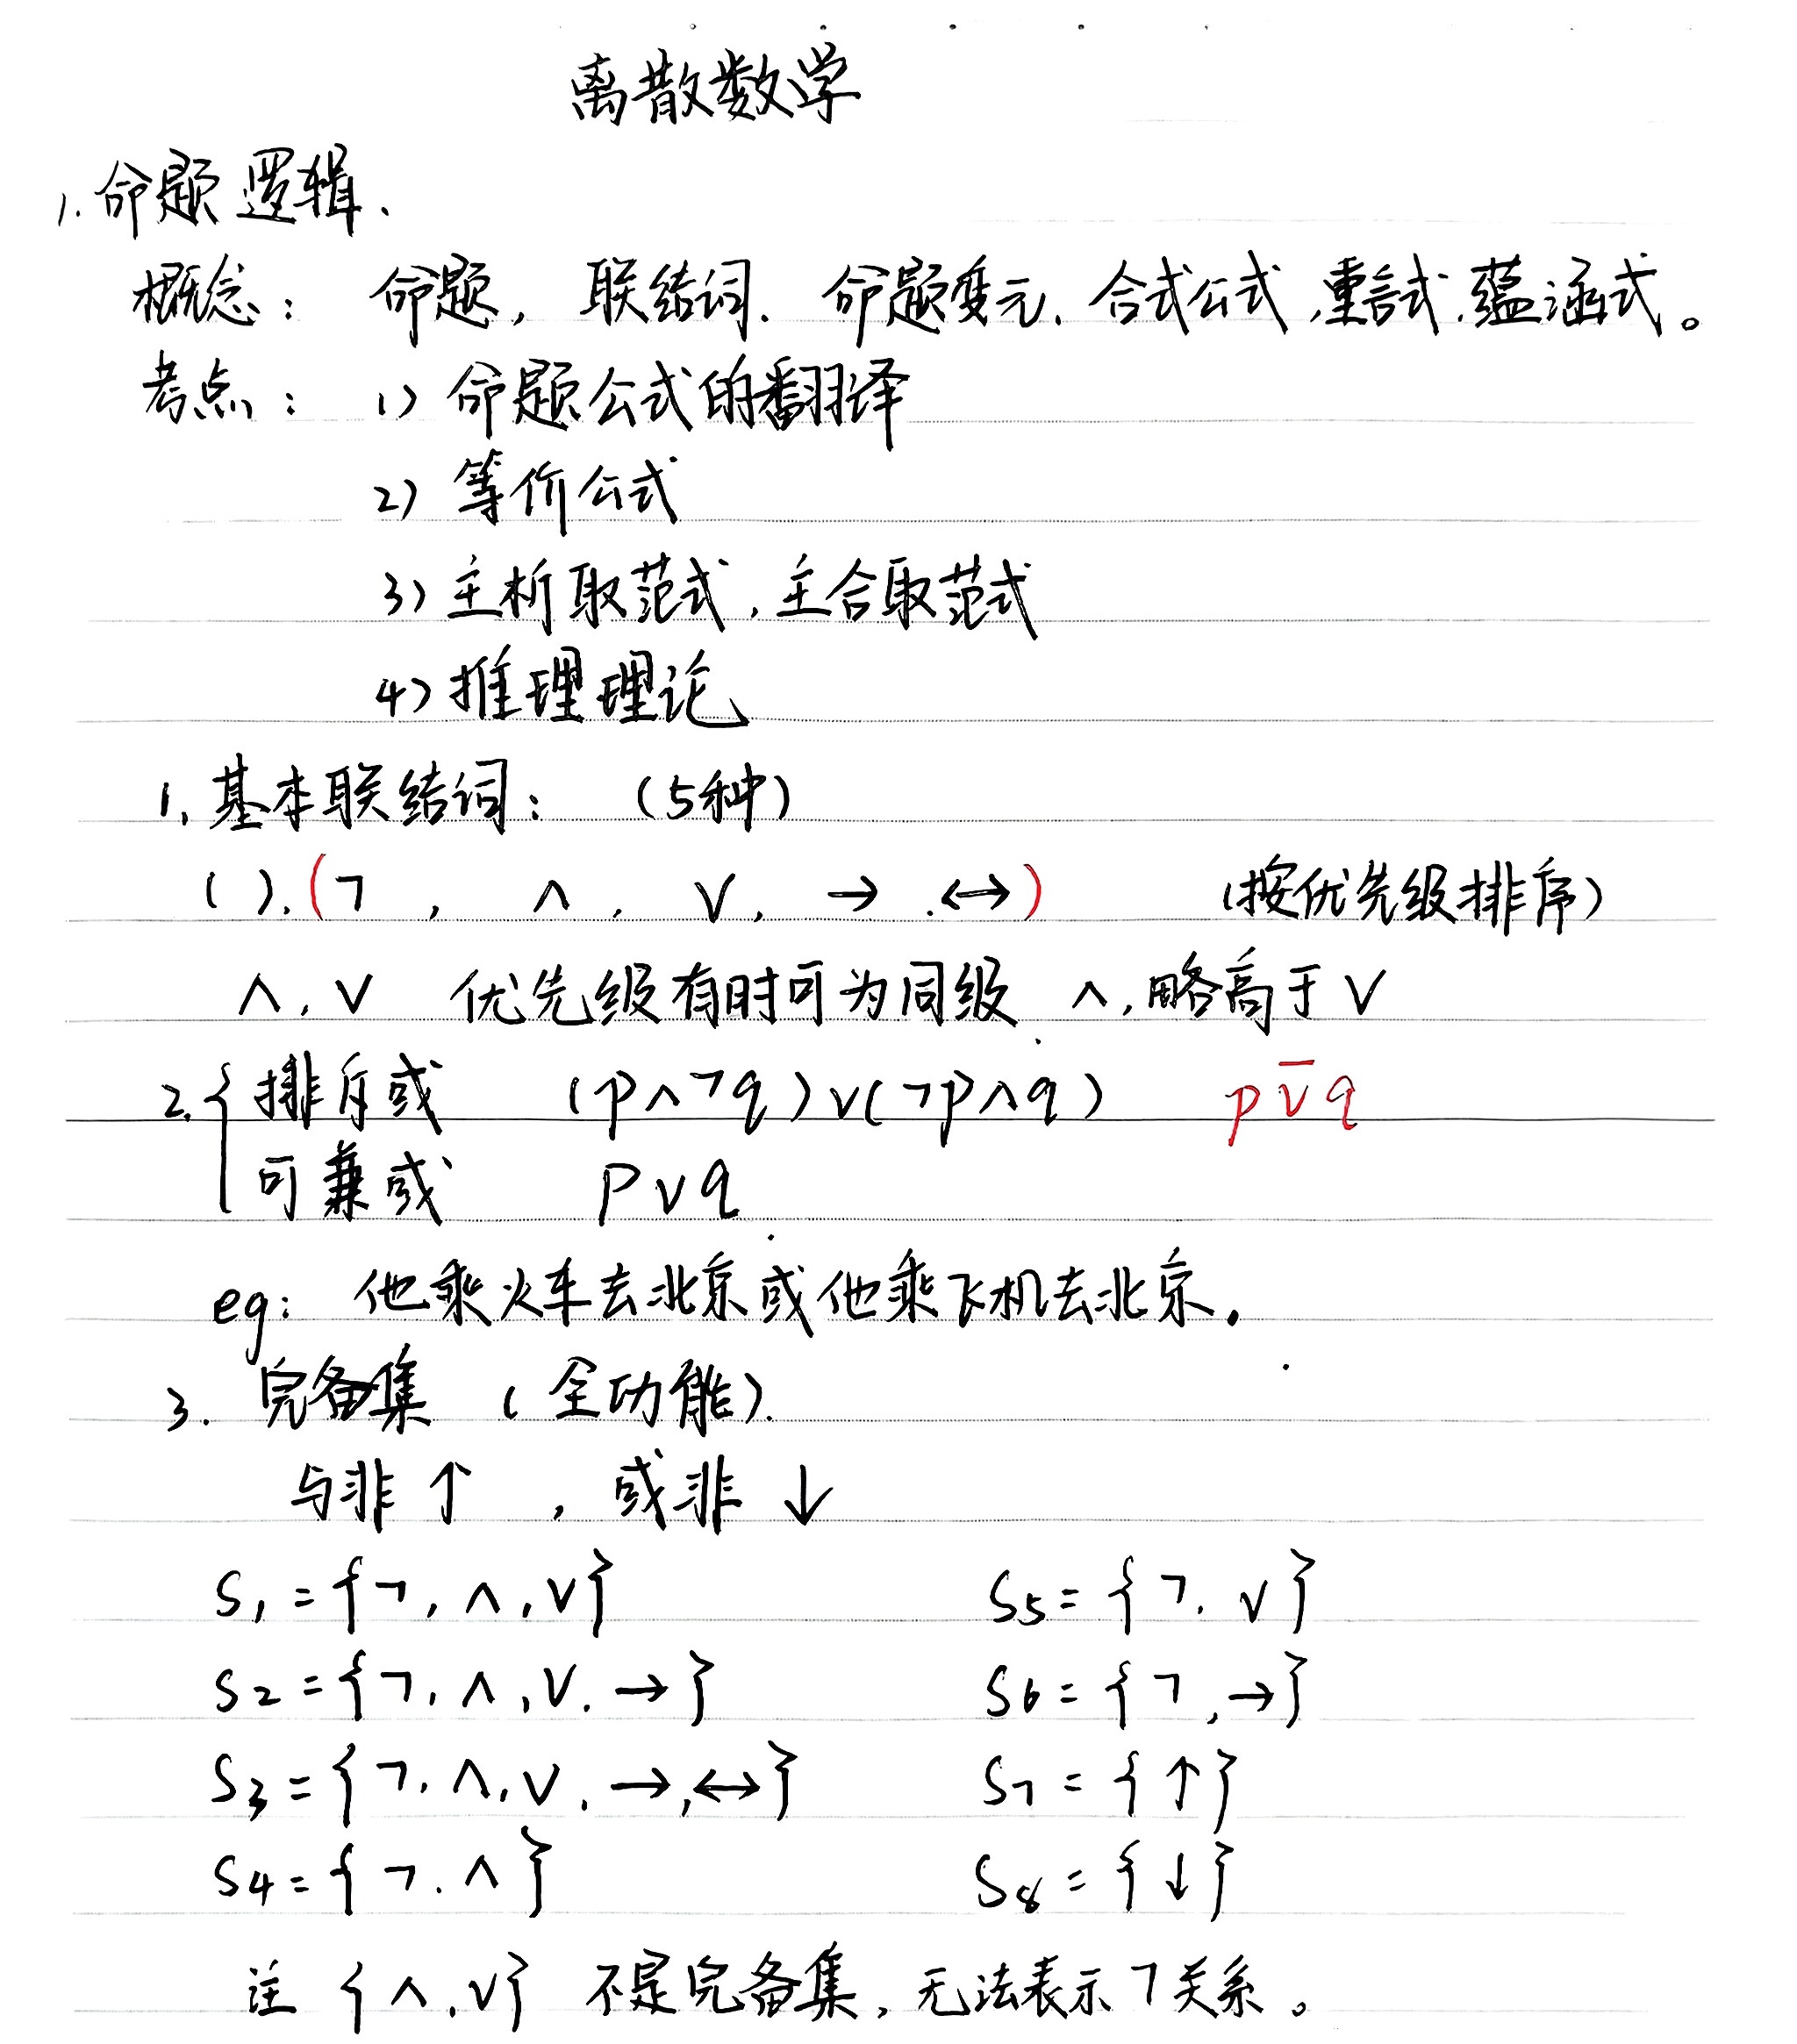 离散数学
1. 命题逻辑.
概念: 命题, 联结词. 命题变元. 合式公式, 重言式, 蕴涵式。
考点: 1) 命题公式的翻译
2) 等价公式
3) 主析取范式, 主合取范式
4) 推理理论
1, 基本联结词: (5种)
( ). (¬, ∧, ∨, →, ↔) (按优先级排序)
∧, ∨ 优先级有时可为同级 ∧, 略高于 ∨
2. { 排斥或 (p∧¬q)∨(¬p∧q) p⊽q
可兼或 p∨q
eg: 他乘火车去北京或他乘飞机去北京.
3. 完备集 (全功能).
与非 ↑, 或非 ↓
S1 = {¬, ∧, ∨} S5 = {¬. ∨}
S2 = {¬, ∧, ∨. →} S6 = {¬, →}
S3 = {¬. ∧, ∨. →, ↔} S7 = {↑}
S4 = {¬. ∧} S8 = {↓}
注 {∧, ∨} 不是完备集, 无法表示 ¬ 关系。